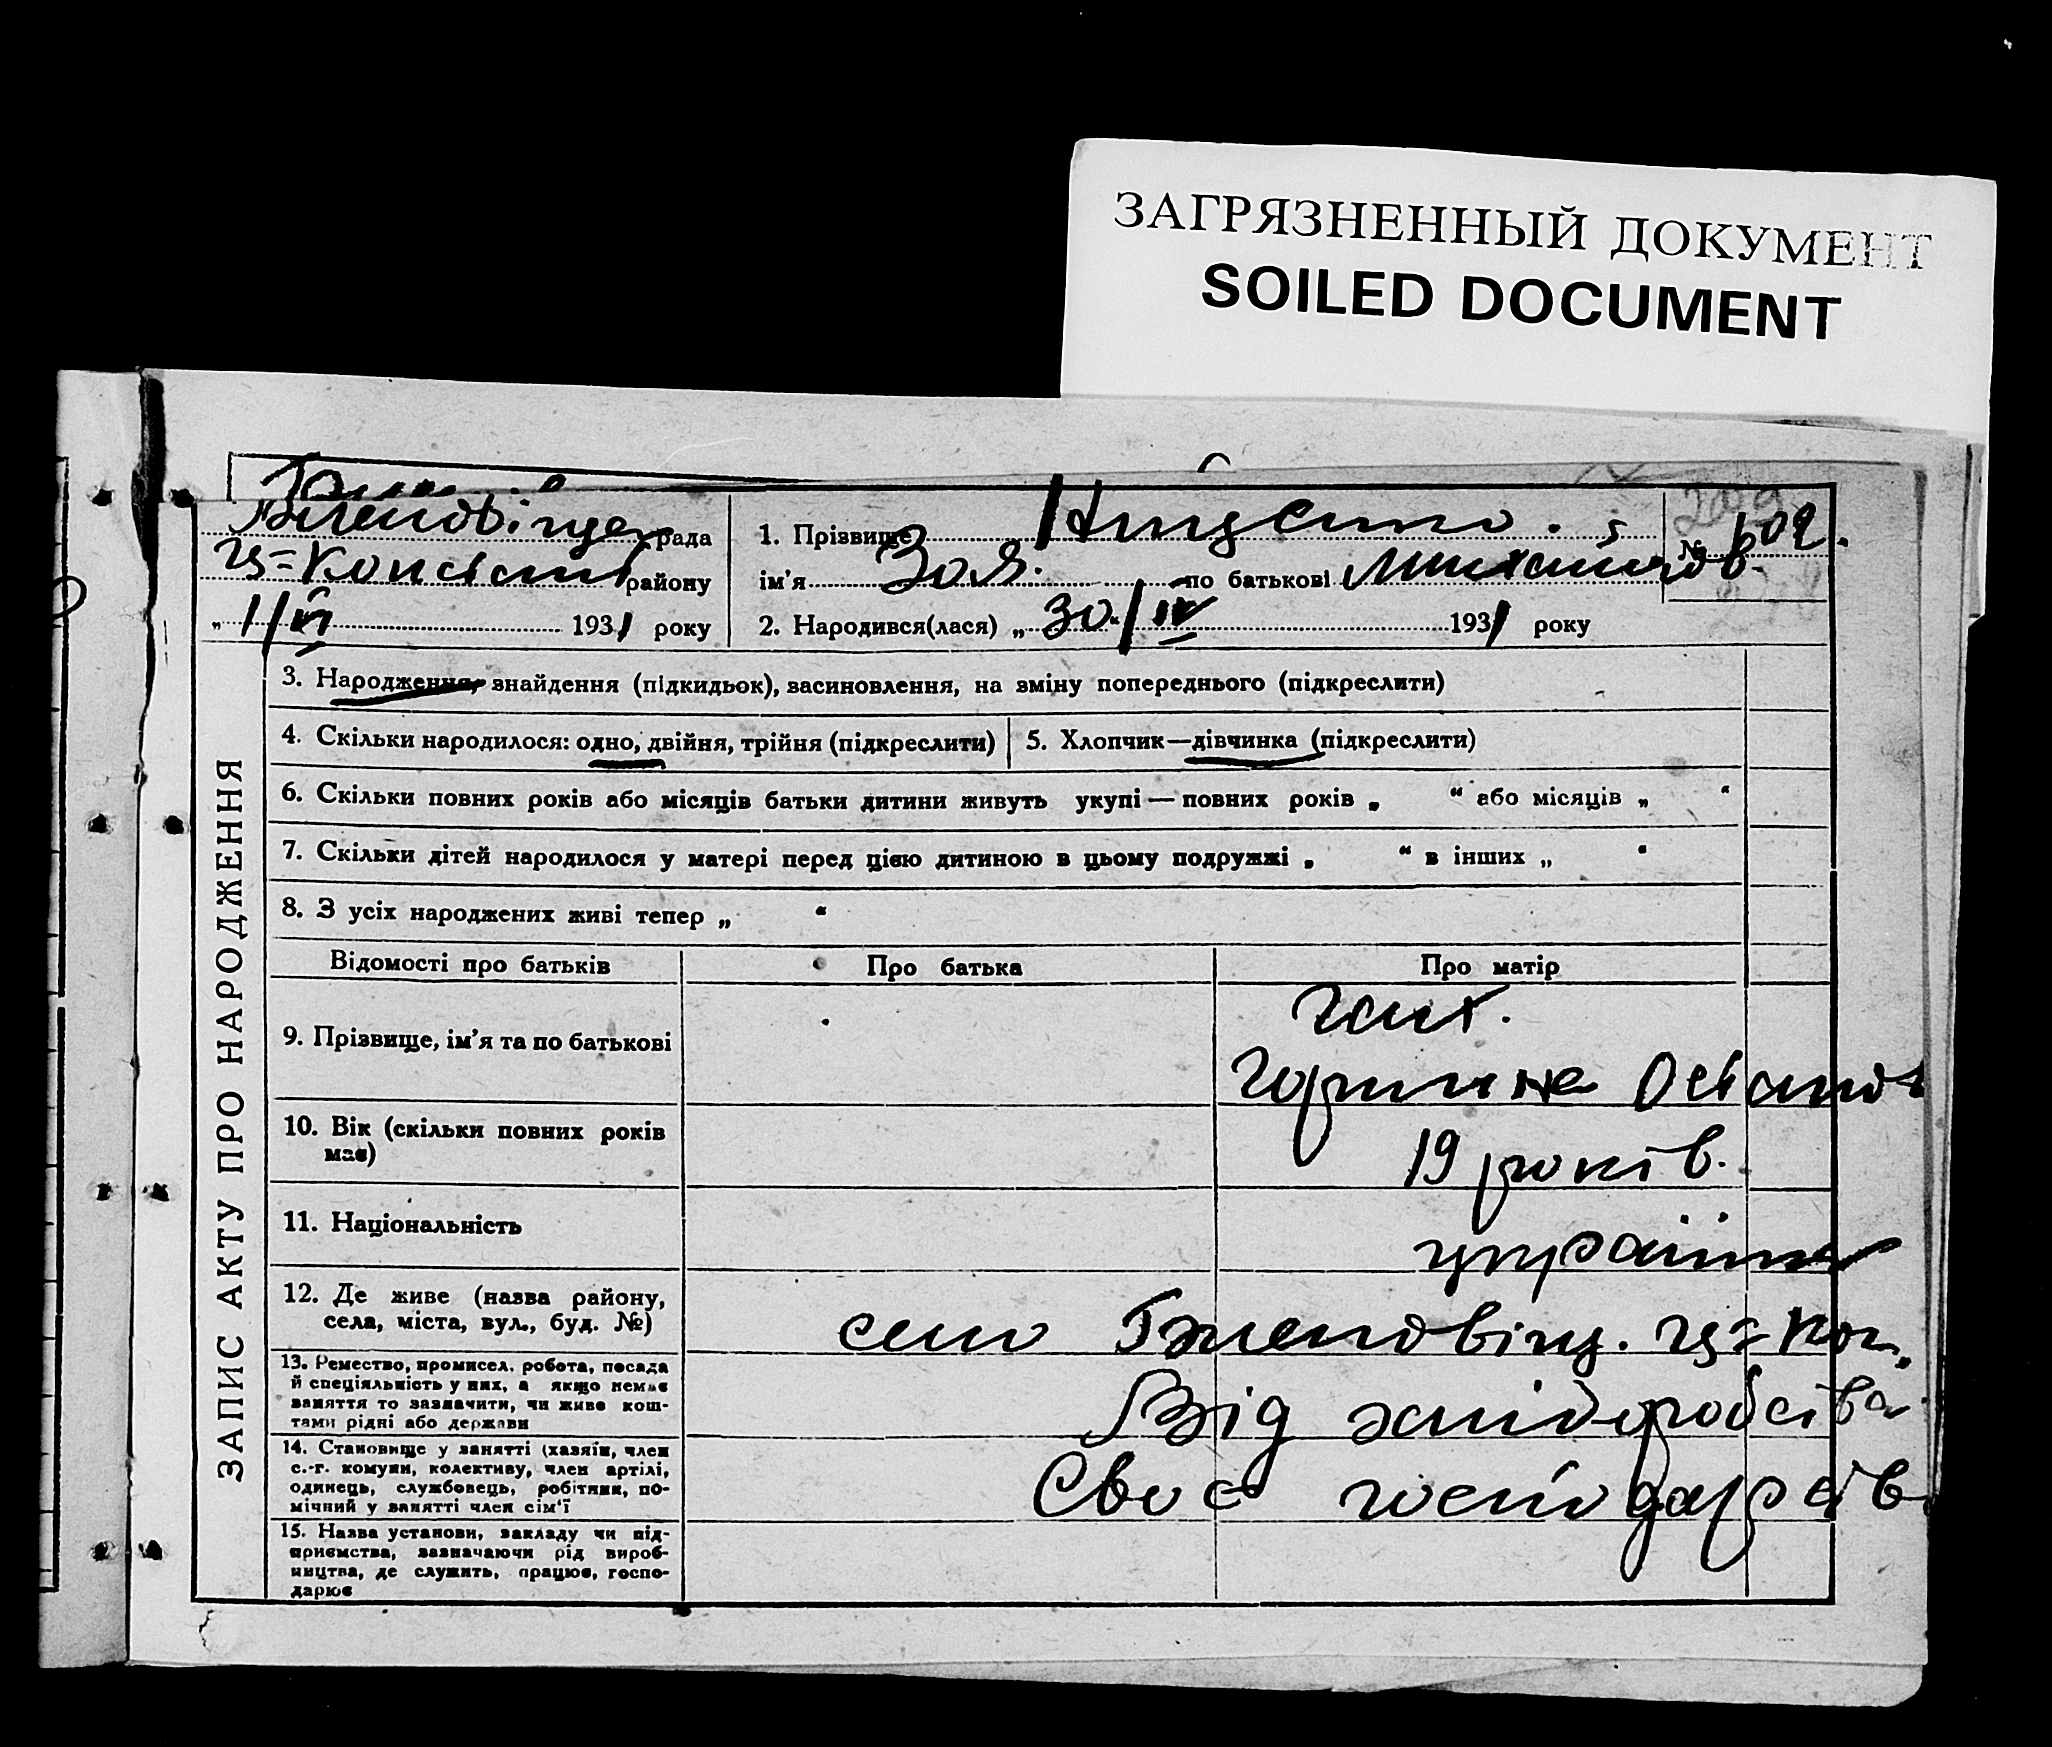 ЗАГРЯЗНЕННЫЙ ДОКУМЕНТ
SOILED DOCUMENT
рада
району
„ 1/VI 1931 року
1. Прізвище
ім'я Зоя. по батькові Михайлов.
2. Народився(лася) „ 30 “/IV 1931 року
№ 609.
ЗАПИС АКТУ ПРО НАРОДЖЕННЯ
3. Народження, знайдення (підкидьок), засиновлення, на зміну попереднього (підкреслити)
4. Скільки народилося: одно, двійня, трійня (підкреслити)
5. Хлопчик—дівчинка (підкреслити)
6. Скільки повних років або місяців батьки дитини живуть укупі — повних років „ “ або місяців „ “
7. Скільки дітей народилося у матері перед цією дитиною в цьому подружжі „ “ в інших „ “
8. З усіх народжених живі тепер „ “
Відомості про батьків
Про батька
Про матір
9. Прізвище, ім'я та по батькові
10. Вік (скільки повних років має)
19 років.
11. Національність
україн
12. Де живе (назва району, села, міста, вул., буд. №)
село
13. Ремество, промисел, робота, посада й спеціяльність у них, а якщо немає заняття то зазначити, чи живе коштами рідні або держави
Від хліборобства
14. Становище у занятті (хазяїн, член с.-г. комуни, колективу, член артілі, одинець, службовець, робітник, помічний у занятті член сім'ї
Своє господарств
15. Назва установи, закладу чи підприємства, зазначаючи рід виробництва, де служить, працює, господарює